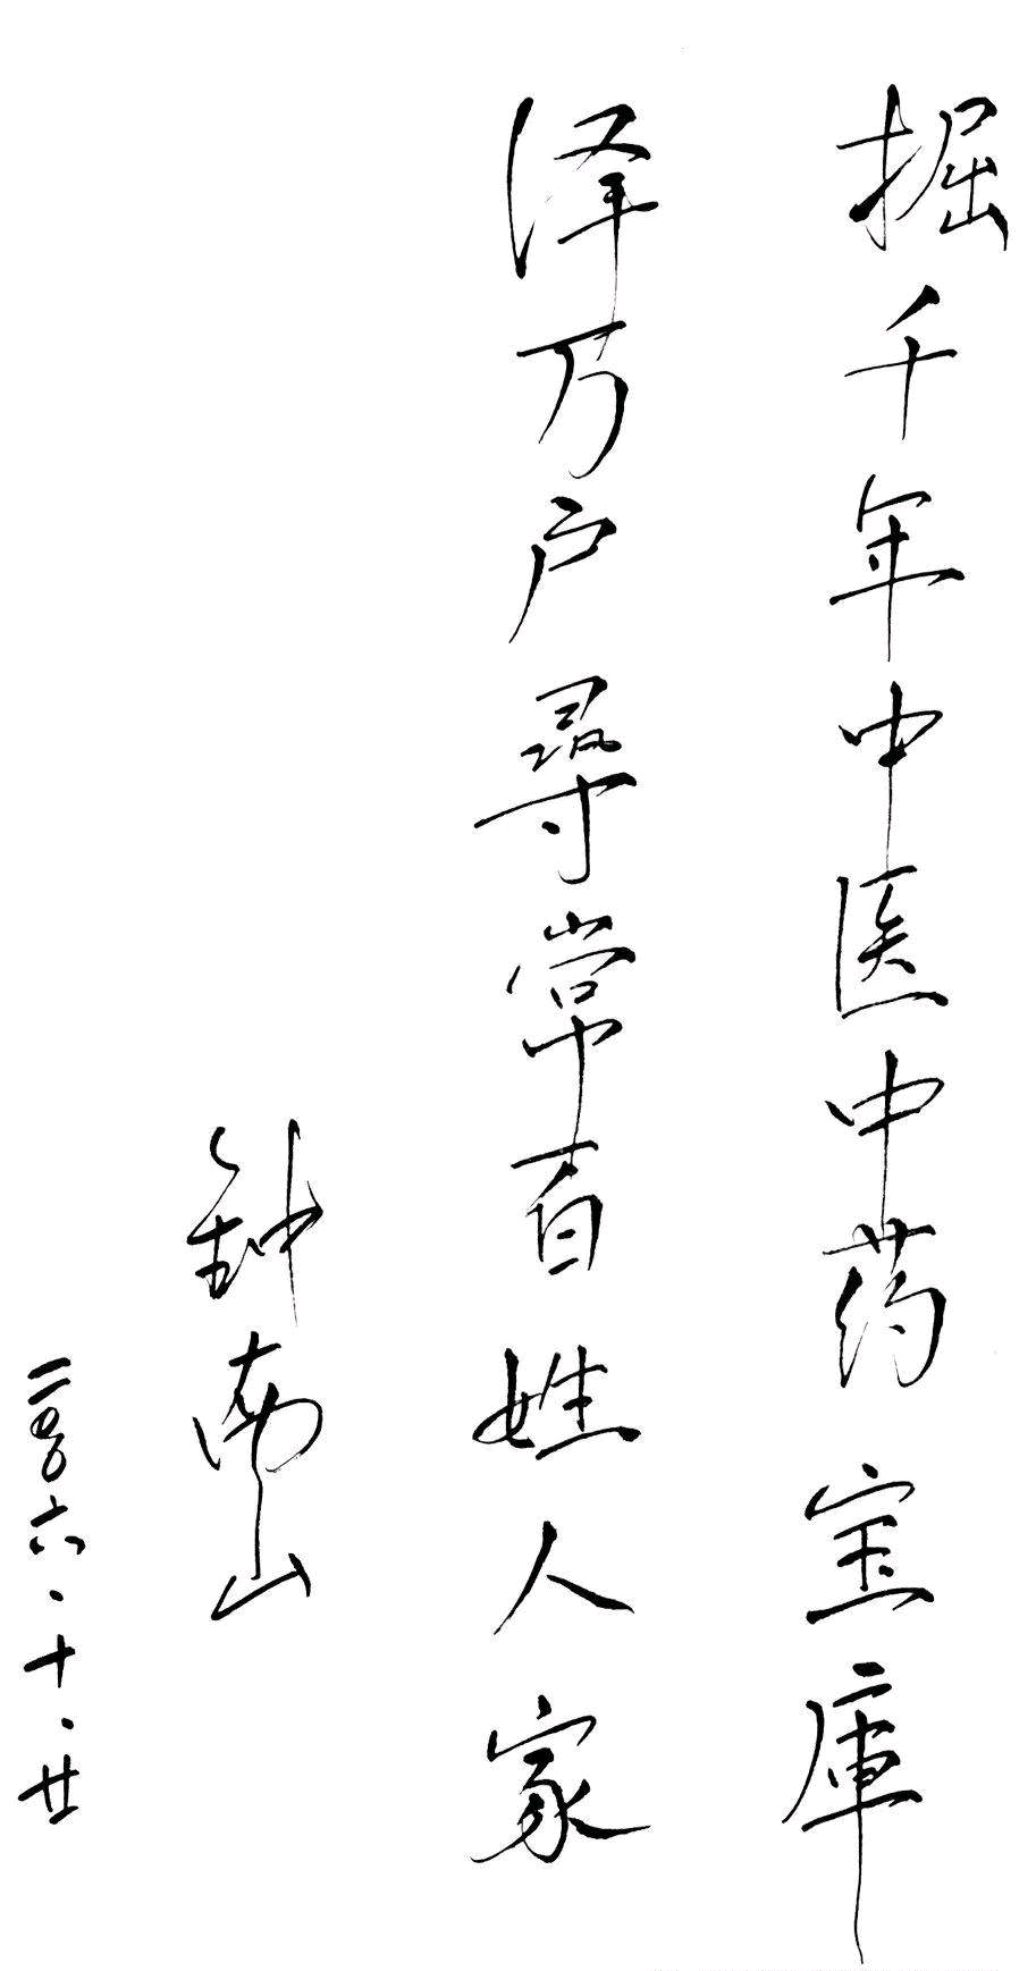 掘千年中医中药宝庫
泽万户尋常百姓人家
钟南山
二〇〇六.十.廿